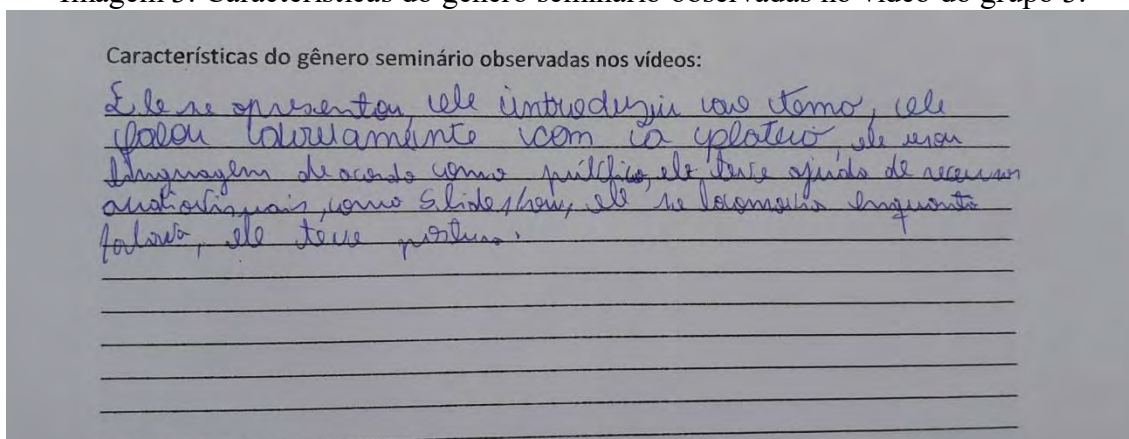 Imagem 3: Características do gênero seminário observadas no vídeo do grupo 3.
Características do gênero seminário observadas nos vídeos:
Ele se apresentou, ele introduziu ao tema, ele
falou claramente com a plateia, ele usou
linguagem de acordo como público, ele teve ajuda de recursos
audiovisuais, como Slide show, ele se locomovia enquanto
falava, ele teve postura.